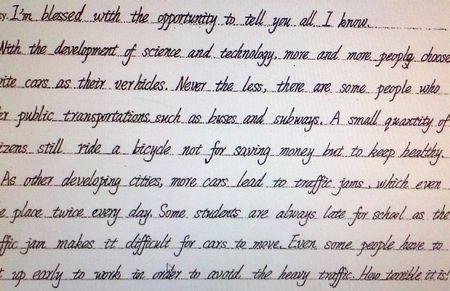 sy. I'm blessed with the opportunity to tell you all I know.
With the development of science and technology, more and more people choose
rite cars as their verhicles. Never the less, there are some people who
er public transportations such as buses and subways. A small quantity of
izens still ride a bicycle not for saving money but to keep healthy.
As other developing cities, more cars lead to traffic jams, which even
e place twice every day. Some students are always late for school as the
ffic jam makes it difficult for cars to move. Even some people have to
t up early to work in order to avoid the heavy traffic. How terrible it is!